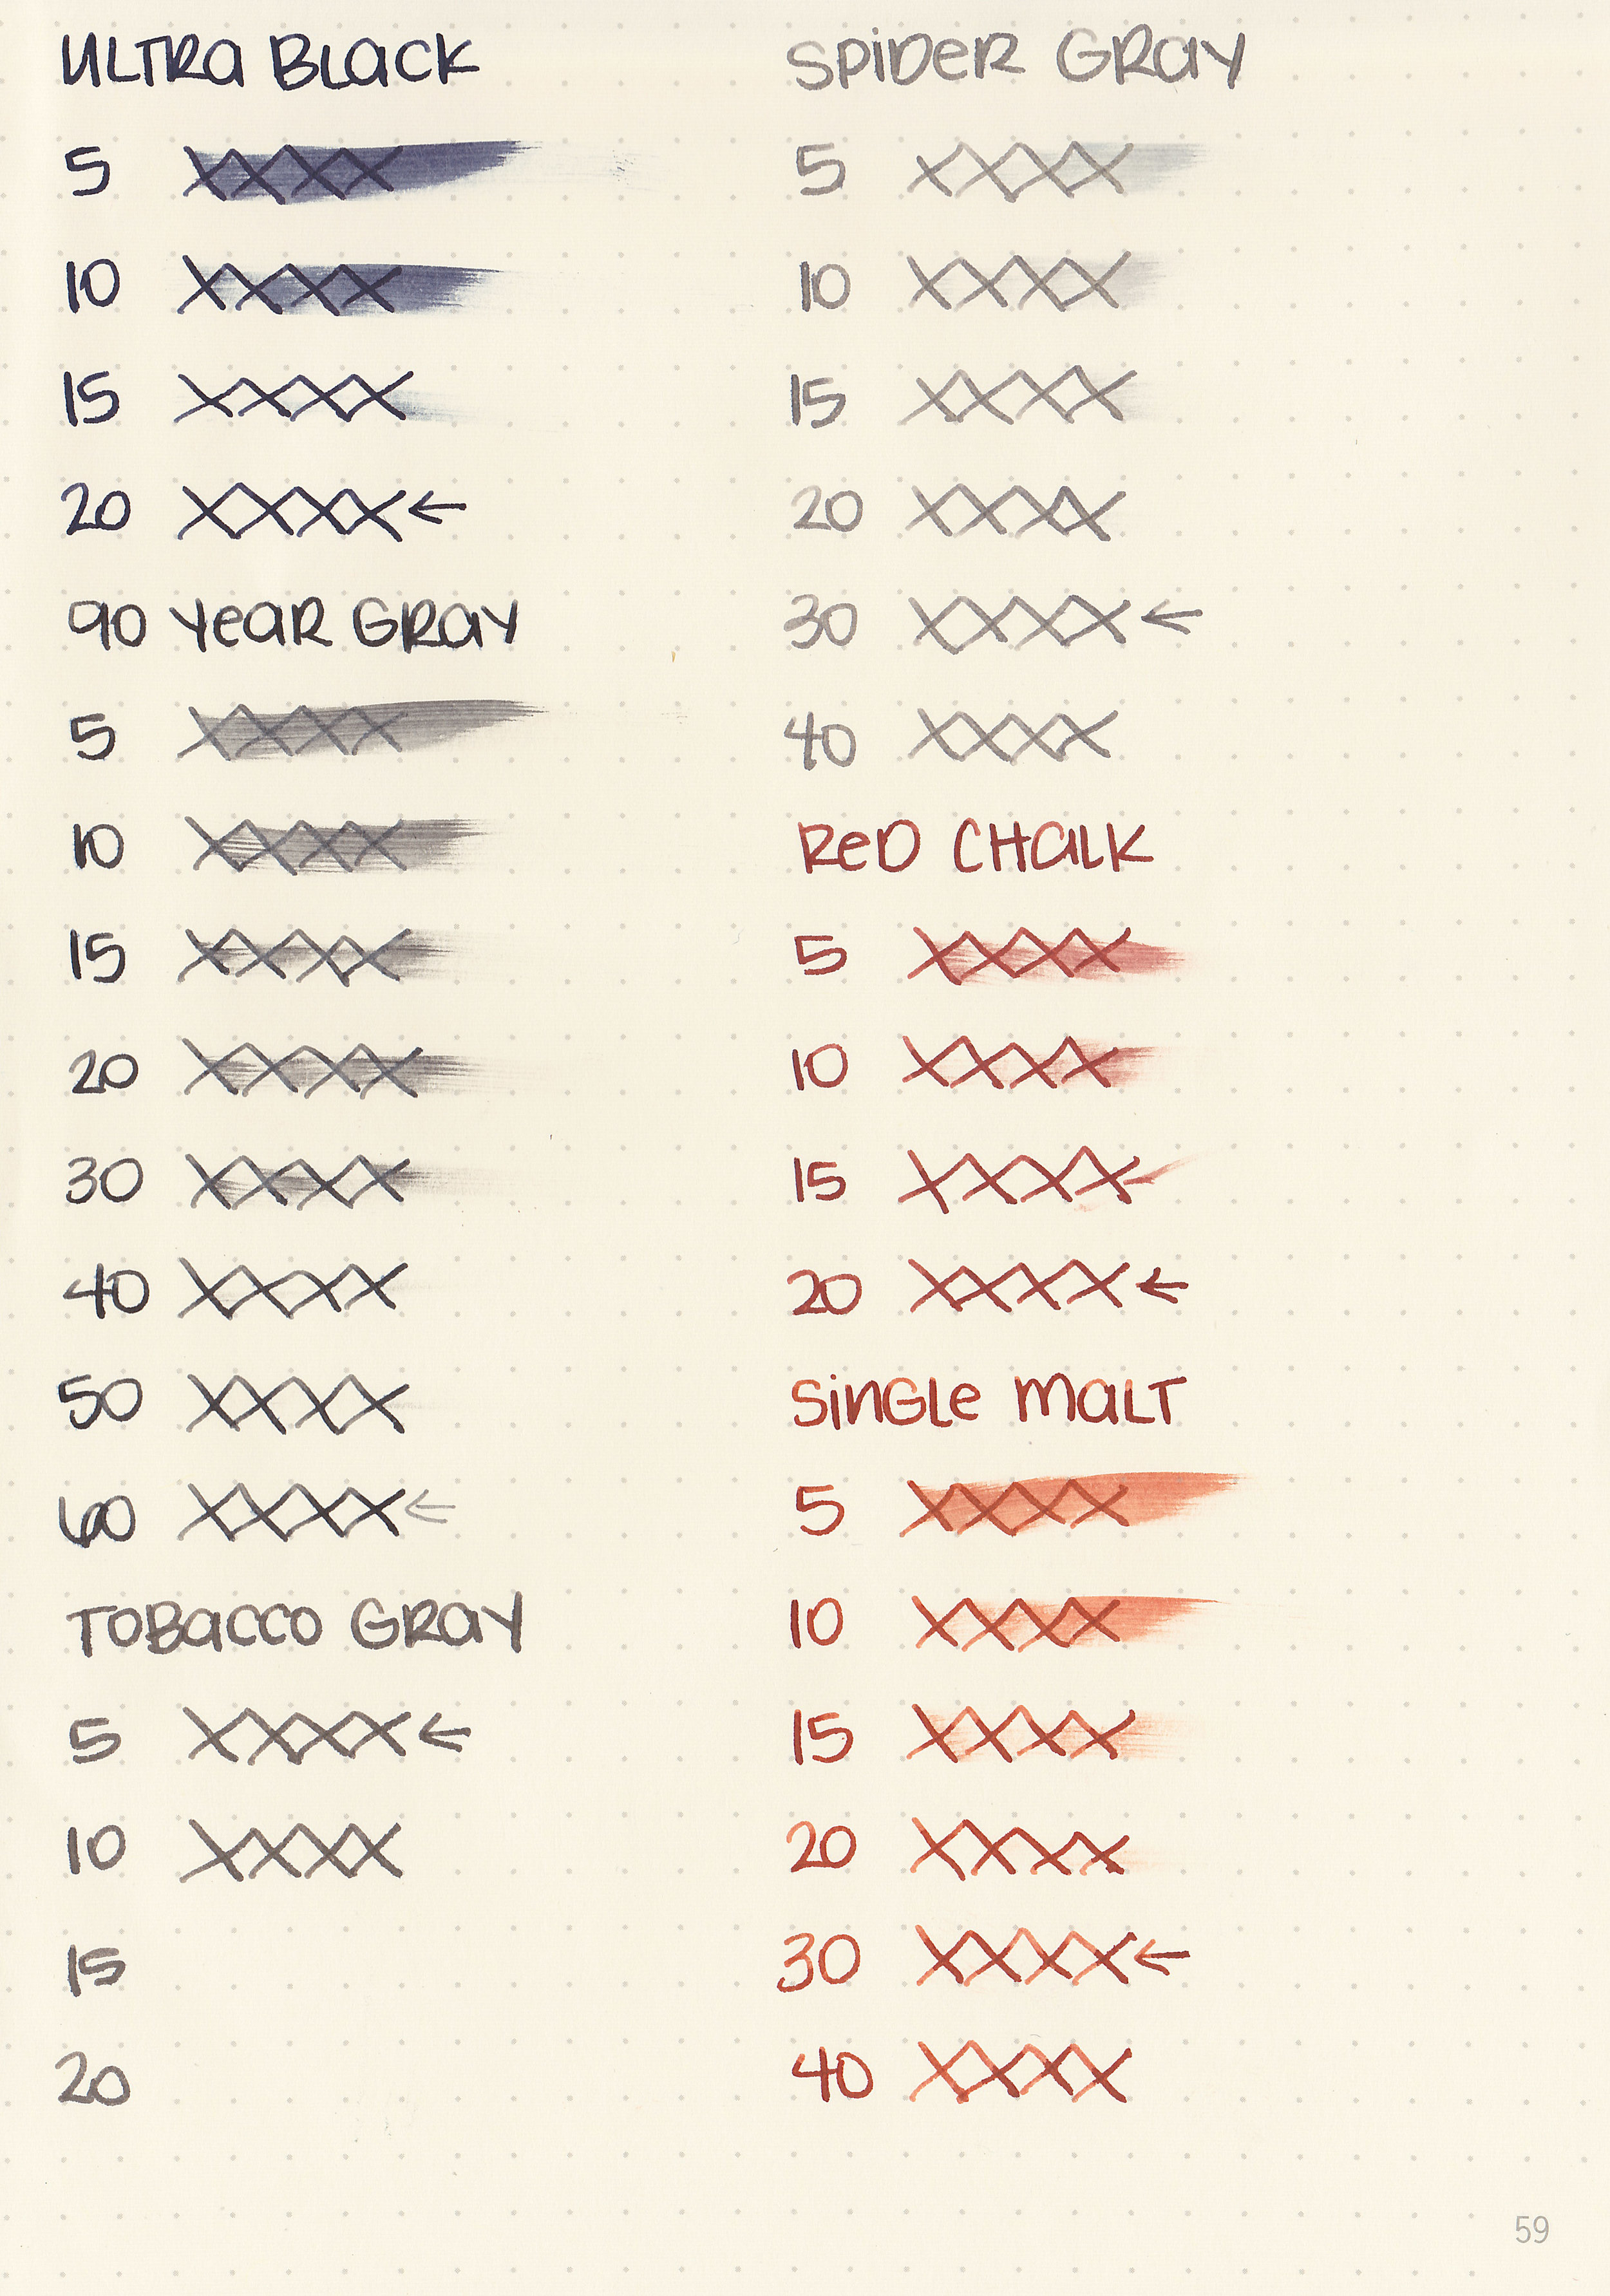 ULTRA BLACK
5 XXXX
10 XXXX
15 XXXX
20 XXXX←
90 YEAR GRAY
5 XXXX
10 XXXX
15 XXXX
20 XXXX
30 XXXX
40 XXXX
50 XXXX
60 XXXX←
TOBACCO GRAY
5 XXXX←
10 XXXX
15
20
SPIDER GRAY
5 XXXX
10 XXXX
15 XXXX
20 XXXX
30 XXXX←
40 XXXX
RED CHALK
5 XXXX
10 XXXX
15 XXXX
20 XXXX←
SINGLE MALT
5 XXXX
10 XXXX
15 XXXX
20 XXXX
30 XXXX←
40 XXXX
59